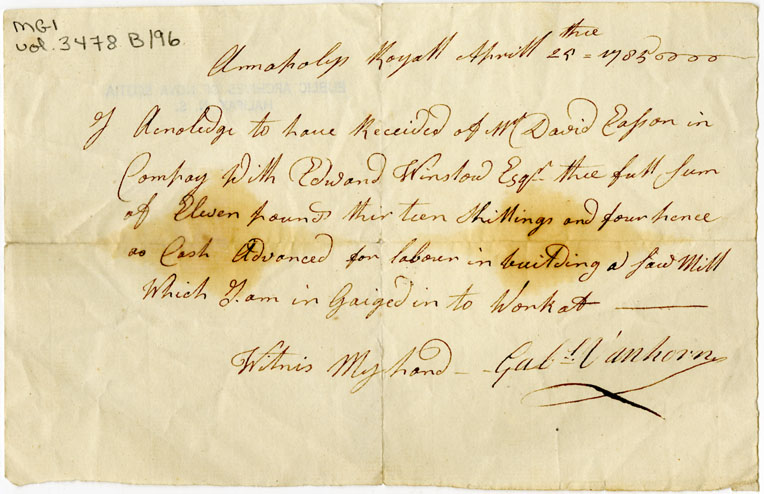 MG1
vol. 3478 B/96
PUBLIC ARCHIVES OF NOVA SCOTIA
HALIFAX, N. S.
Annapolys Royall Aprill thee 25 = 1785
I Acnoledge to have Received of Mr David Easson in
Compay With Edward Winslow Esqr. thee full Sum
of Eleven pounds thir teen Shillings and four pence
as Cash Advanced for labour in building a Saw Mill
Which I am in Gaiged in to Work at
Witnis My hand - Gabl. Vanhorn